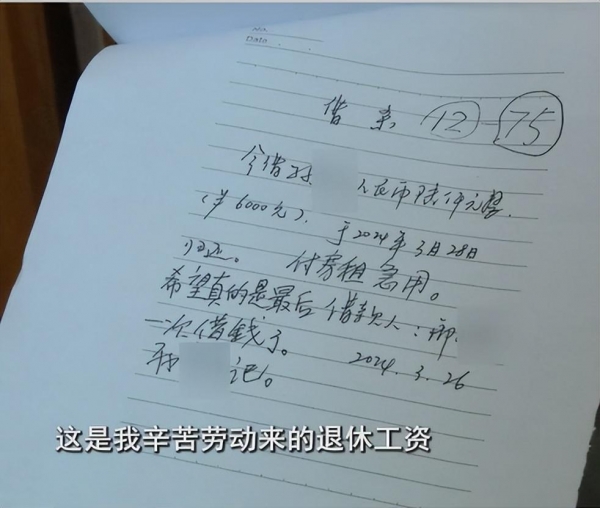 No.
Date
借条 12 75
今借到 人民币陆仟元整.
(￥6000元). 于2024年3月28日
归还。 付房租急用。
希望真的是最后 借款人：郭
一次借钱了。 2024.3.26
记。
这是我辛苦劳动来的退休工资